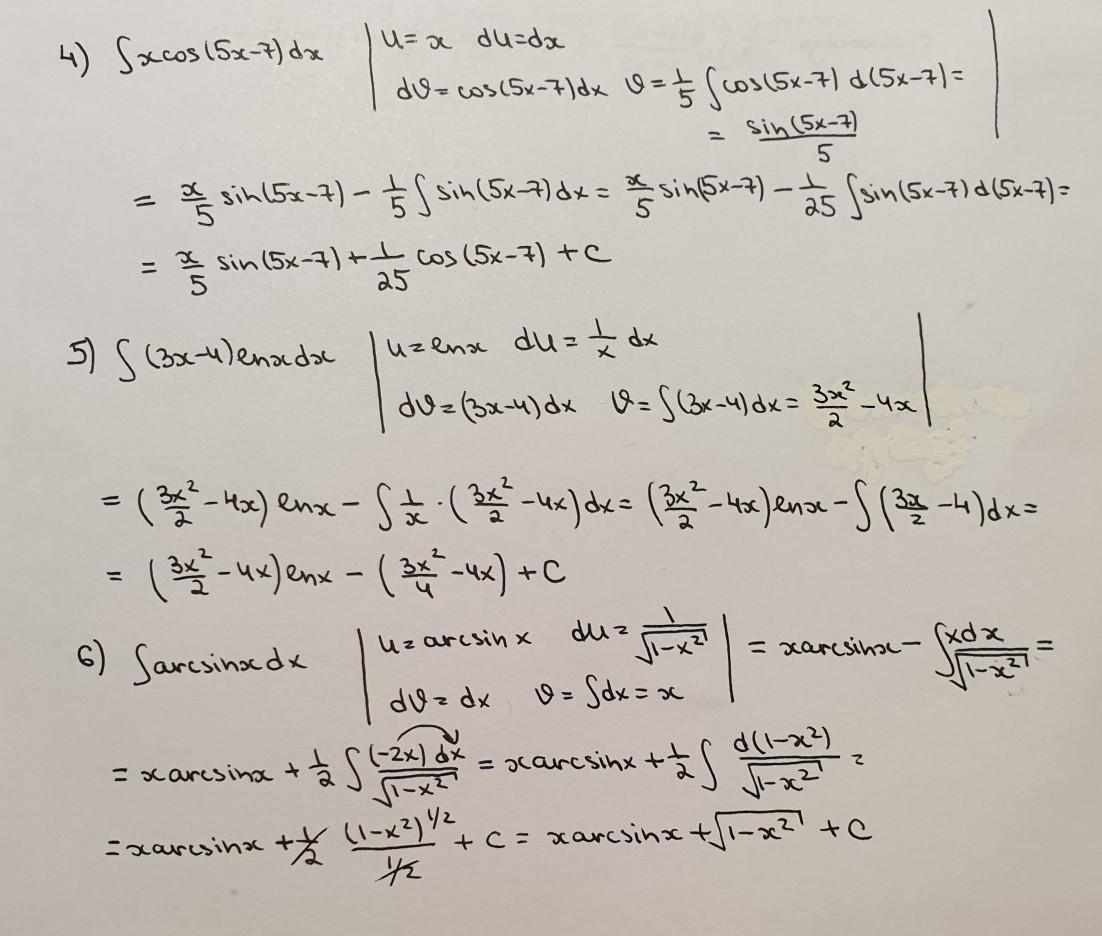 4) ∫xcos(5x-7)dx | u=x du=dx
dϑ=cos(5x-7)dx ϑ=1/5 ∫cos(5x-7) d(5x-7)=
= sin(5x-7)/5 |
= x/5 sin(5x-7) - 1/5 ∫sin(5x-7)dx = x/5 sin(5x-7) - 1/25 ∫sin(5x-7)d(5x-7)=
= x/5 sin(5x-7) + 1/25 cos(5x-7) + C
5) ∫(3x-4)lnxdx | u=lnx du = 1/x dx
dϑ=(3x-4)dx ϑ=∫(3x-4)dx = 3x²/2 - 4x |
= (3x²/2 - 4x) lnx - ∫ 1/x · (3x²/2 - 4x)dx = (3x²/2 - 4x)lnx - ∫(3x/2 - 4)dx =
= (3x²/2 - 4x)lnx - (3x²/4 - 4x) + C
6) ∫arcsinxdx | u=arcsinx du= 1/√(1-x²) | = xarcsinx - ∫xdx/√(1-x²) =
dϑ=dx ϑ=∫dx=x
= xarcsinx + 1/2 ∫(-2x)dx/√(1-x²) = xarcsinx + 1/2 ∫ d(1-x²)/√(1-x²) =
= xarcsinx + 1/2 (1-x²)^1/2 / 1/2 + C = xarcsinx + √(1-x²) + C